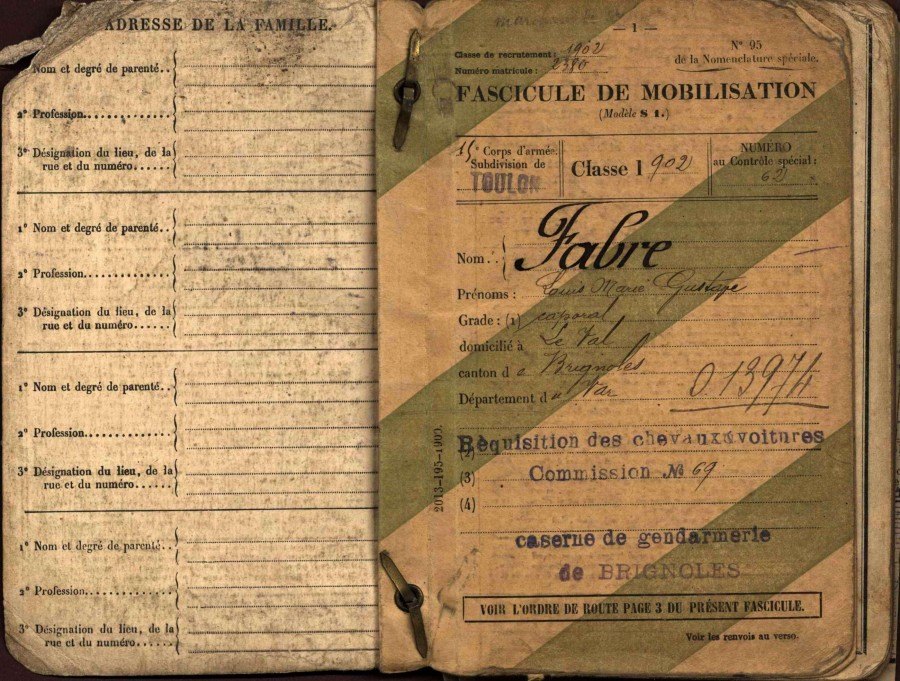 ADRESSE DE LA FAMILLE.
Nom et degré de parenté..
2° Profession............
3° Désignation du lieu, de la
rue et du numéro......
1° Nom et degré de parenté..
2° Profession............
3° Désignation du lieu, de la
rue et du numéro......
1° Nom et degré de parenté..
2° Profession............
3° Désignation du lieu, de la
rue et du numéro......
1° Nom et degré de parenté..
2° Profession............
3° Désignation du lieu, de la
rue et du numéro......
— 1 —
Classe de recrutement: 1902
Numéro matricule: 2380
N° 95
de la Nomenclature spéciale.
FASCICULE DE MOBILISATION
(Modèle S 1.)
15e Corps d'armée
Subdivision de
TOULON
Classe 1902
NUMÉRO
au Contrôle spécial:
62
Nom.. Fabre
Prénoms: Louis Marie Gustave
Grade: (1) caporal
domicilié à Le Val
canton de Brignoles
Département du Var
0.13974
Réquisition des chevaux & voitures
(2)
(3) Commission № 69
(4)
caserne de gendarmerie
de BRIGNOLES
VOIR L'ORDRE DE ROUTE PAGE 3 DU PRÉSENT FASCICULE.
Voir les renvois au verso.
2013-195-1909.